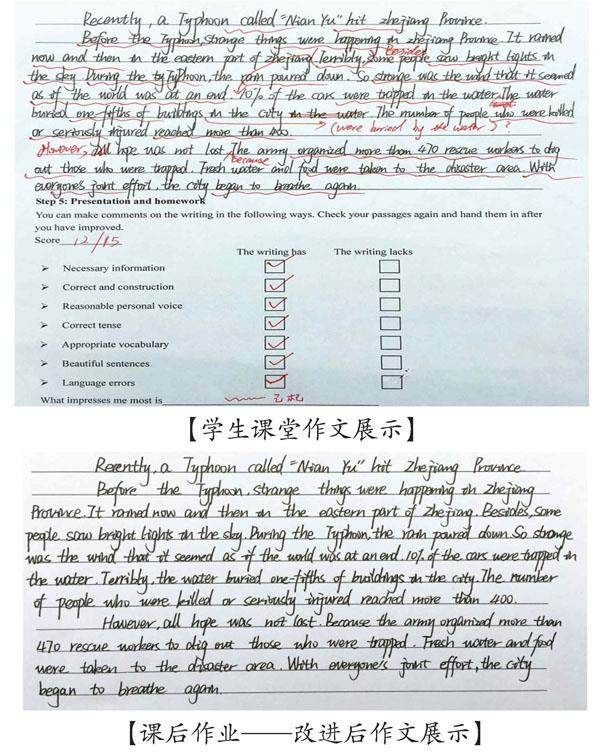 Recently, a Typhoon called "Nian Yu" hit zhejiang Province.
Before the Typhoon, strange things were happening in zhejiang Province. It rained
now and then in the eastern part of zhejiang. Terribly, some people saw bright lights in
Besides
the sky. During the ty Typhoon, the rain poured down. So strange was the wind that it seemed
as if the world was at an end. 10% of the cars were trapped in the water. The water
buried one-fifths of buildings in the city in the water. The number of people who were killed
or seriously injured reached more than 400.
(were buried by the water) ?
However, all hope was not lost. The army organized more than 470 rescue workers to dig
because
out those who were trapped. Fresh water and food were taken to the disaster area. With
everyone's joint effort, the city began to breathe again.
Step 5: Presentation and homework
You can make comments on the writing in the following ways. Check your passages again and hand them in after
you have improved.
Score 12/15
The writing has The writing lacks
➢ Necessary information
➢ Correct and construction
➢ Reasonable personal voice
➢ Correct tense
➢ Appropriate vocabulary
➢ Beautiful sentences
➢ Language errors
What impresses me most is
【学生课堂作文展示】
Recently, a Typhoon called "Nian Yu" hit Zhejiang Province.
Before the Typhoon, strange things were happening in Zhejiang
Province. It rained now and then in the eastern part of Zhejiang. Besides, some
people saw bright lights in the sky. During the Typhoon, the rain poured down. So strange
was the wind that it seemed as if the world was at an end. 10% of the cars were trapped in
the water. Terribly, the water buried one-fifths of buildings in the city. The number
of people who were killed or seriously injured reached more than 400.
However, all hope was not lost. Because the army organized more than
470 rescue workers to dig out those who were trapped. Fresh water and food
were taken to the disaster area. With everyone's joint effort, the city
began to breathe again.
【课后作业——改进后作文展示】